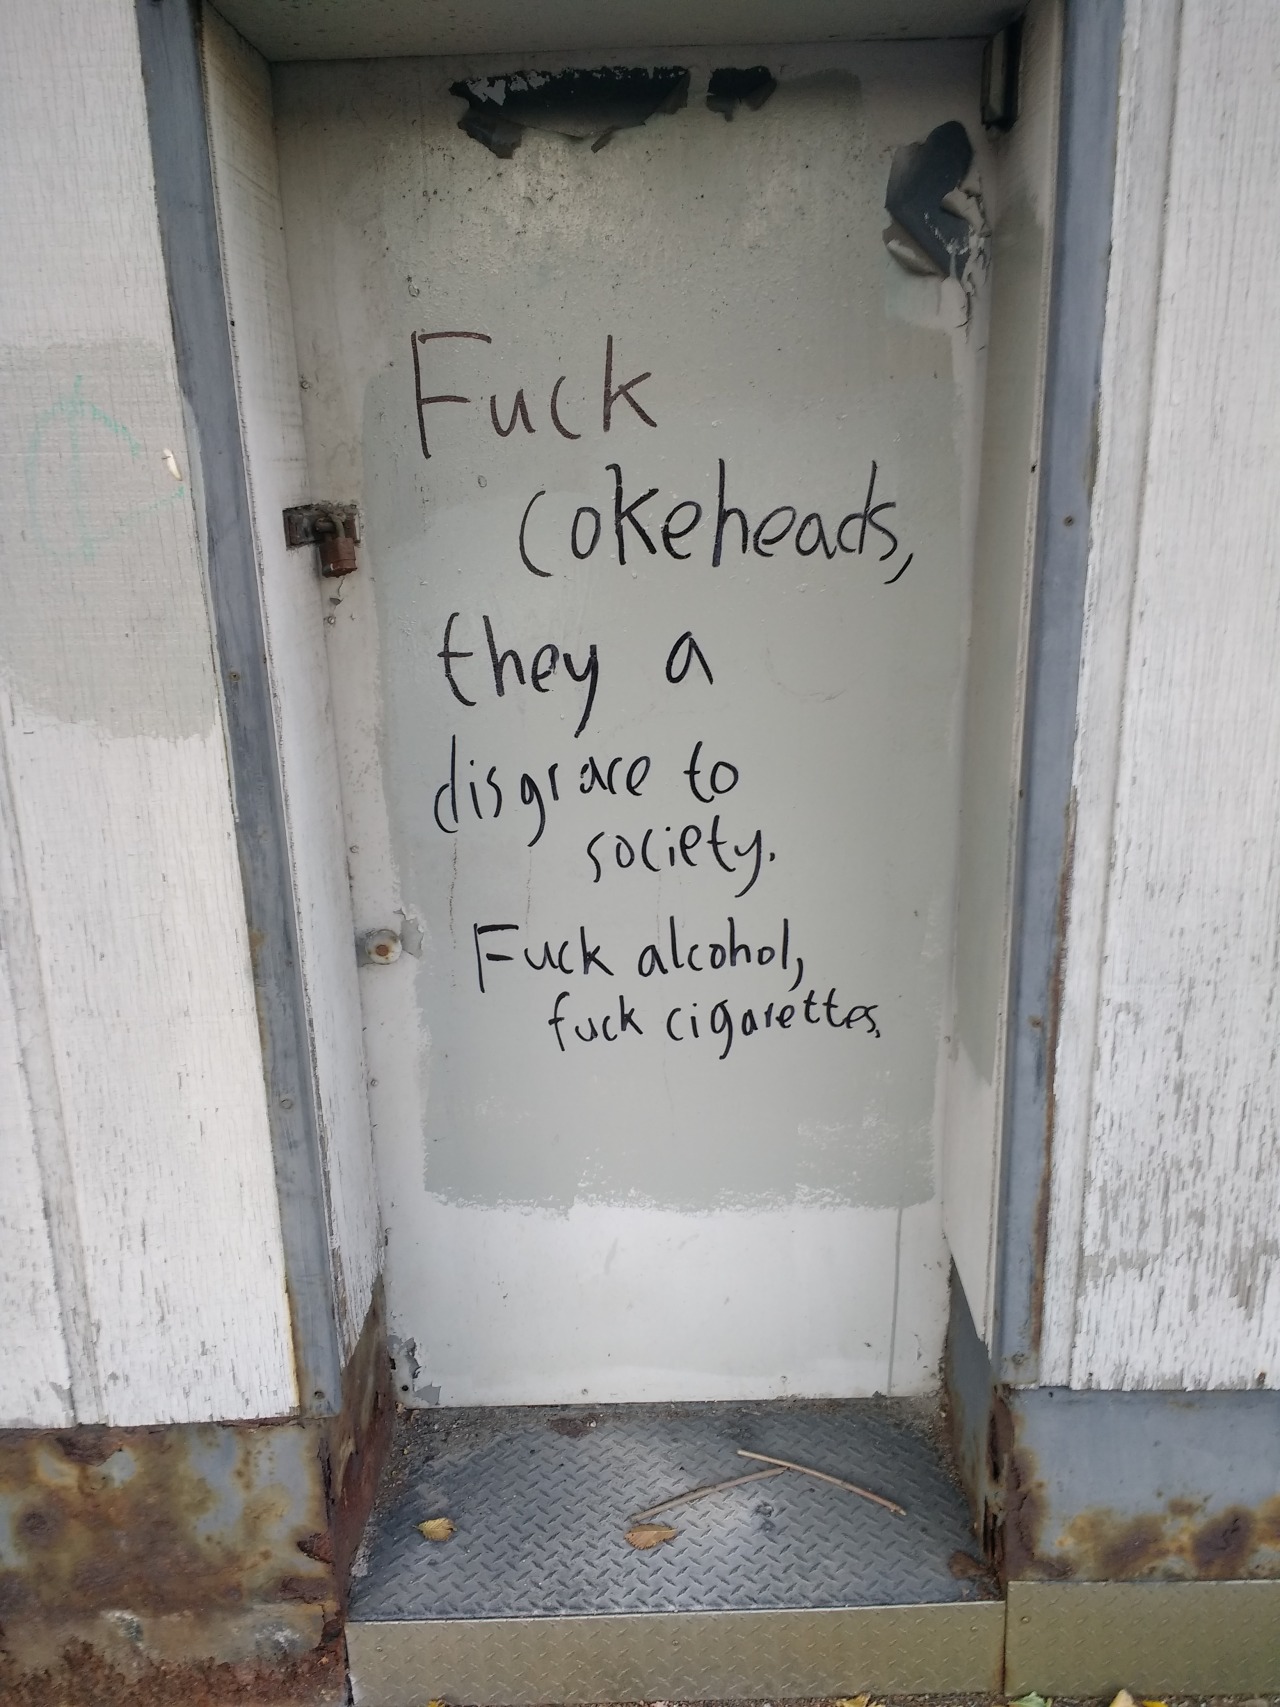 Fuck
cokeheads,
they a
disgrace to
society.
Fuck alcohol,
fuck cigarettes.